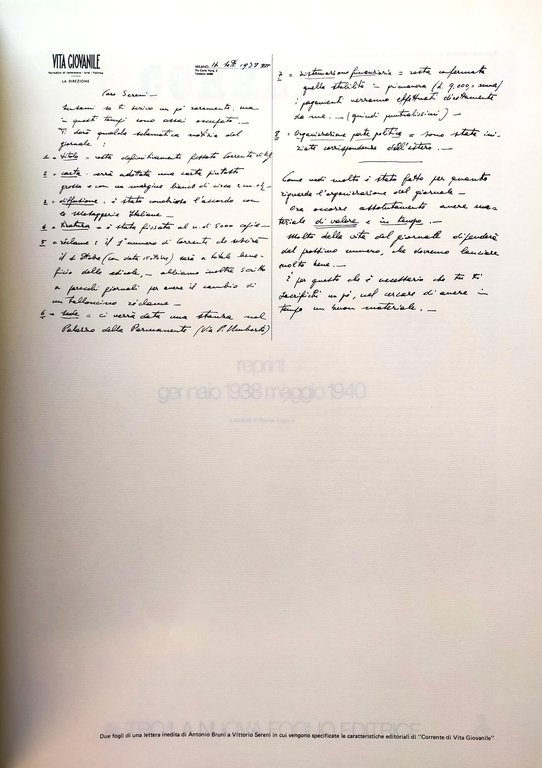 VITA GIOVANILE
Periodico di Letteratura - Arte - Politica
LA DIREZIONE
MILANO, 1938 XVI
Caro Sereni =
Scusami se ti scrivo un po' raramente, ma
in questi tempi sono assai occupato. —
Ti darò qualche schematica notizia del
giornale :
1 = titolo = resta definitivamente fissato Corrente di V.G.
2 = carta = verrà adottata una carta piuttosto
grossa e con un margine bianco di circa 2 cm.
3 = diffusione = è stato concluso l'accordo con
le Messaggerie Italiane —
4 = tiratura = è stata fissata al n. di 5000 copie —
5 = réclame : il 1° numero di Corrente che uscirà
il (con data 15) sarà a totale bene-
ficio delle edicole, — abbiamo inoltre scritto
a parecchi giornali per avere il cambio di
un talloncino réclame —
6 = sede = ci verrà data una stanza nel
Palazzo della Permanente (Via P. Umberto)
7 = Sistemazione finanziaria = resta confermata
quella stabilita in primavera (L. 9.000 = annue)
i pagamenti verranno effettuati direttamente
da me... (quindi puntualissimi) —
8 = Organizzazione parte politica = sono state ini-
ziate corrispondenze dall'estero. —
Come vedi molto è stato fatto per quanto
riguarda l'organizzazione del giornale —
Ora occorre assolutamente avere ma-
teriale di valore e in tempo. —
Molto della vita del giornale dipenderà
dal prossimo numero, che dovremo lanciare
molto bene. —
È per questo che è necessario che tu ti
sacrifichi un po', nel cercare di avere in
tempo un buon materiale. —
reprint
gennaio 1938 maggio 1940
LA NUOVA FOGLIO EDITRICE
Due fogli di una lettera inedita di Antonio Bruni a Vittorio Sereni in cui vengono specificate le caratteristiche editoriali di "Corrente di Vita Giovanile"